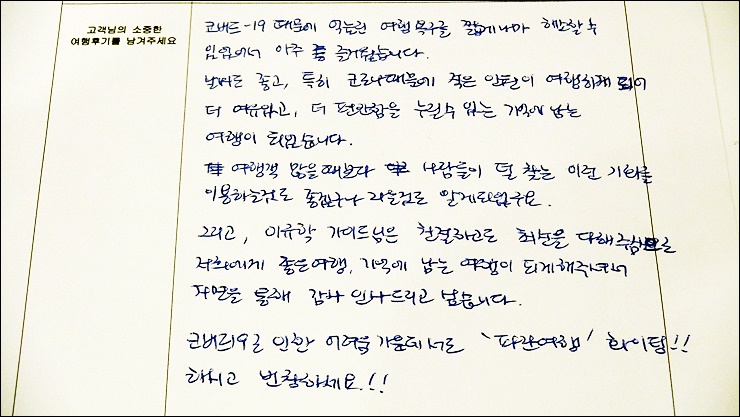 고객님의 소중한
여행후기를 남겨주세요
코비드-19 때문에 억눌린 여행 욕구를 짧게나마 해소할 수
있었어서 아주 즐거웠습니다.
날씨도 좋고, 특히 코로나때문에 적은 인원이 여행하게 되어
더 여유있고, 더 편안함을 누릴수 있는 기억에 남는
여행이 되었습니다.
여행객 많을때보다 사람들이 덜 찾는 이런 기회를
이용하는것도 좋겠구나 라는것도 알게되었구요.
그리고, 이유학 가이드님은 친절하고도 최선을 다해주심으로
저희에게 좋은여행, 기억에 남는 여행이 되게해주셔서
지면을 통해 감사 인사드리고 싶습니다.
코비드19로 인한 어려움 가운데서도 '파란여행' 화이팅!!
하시고 번창하세요.!!!